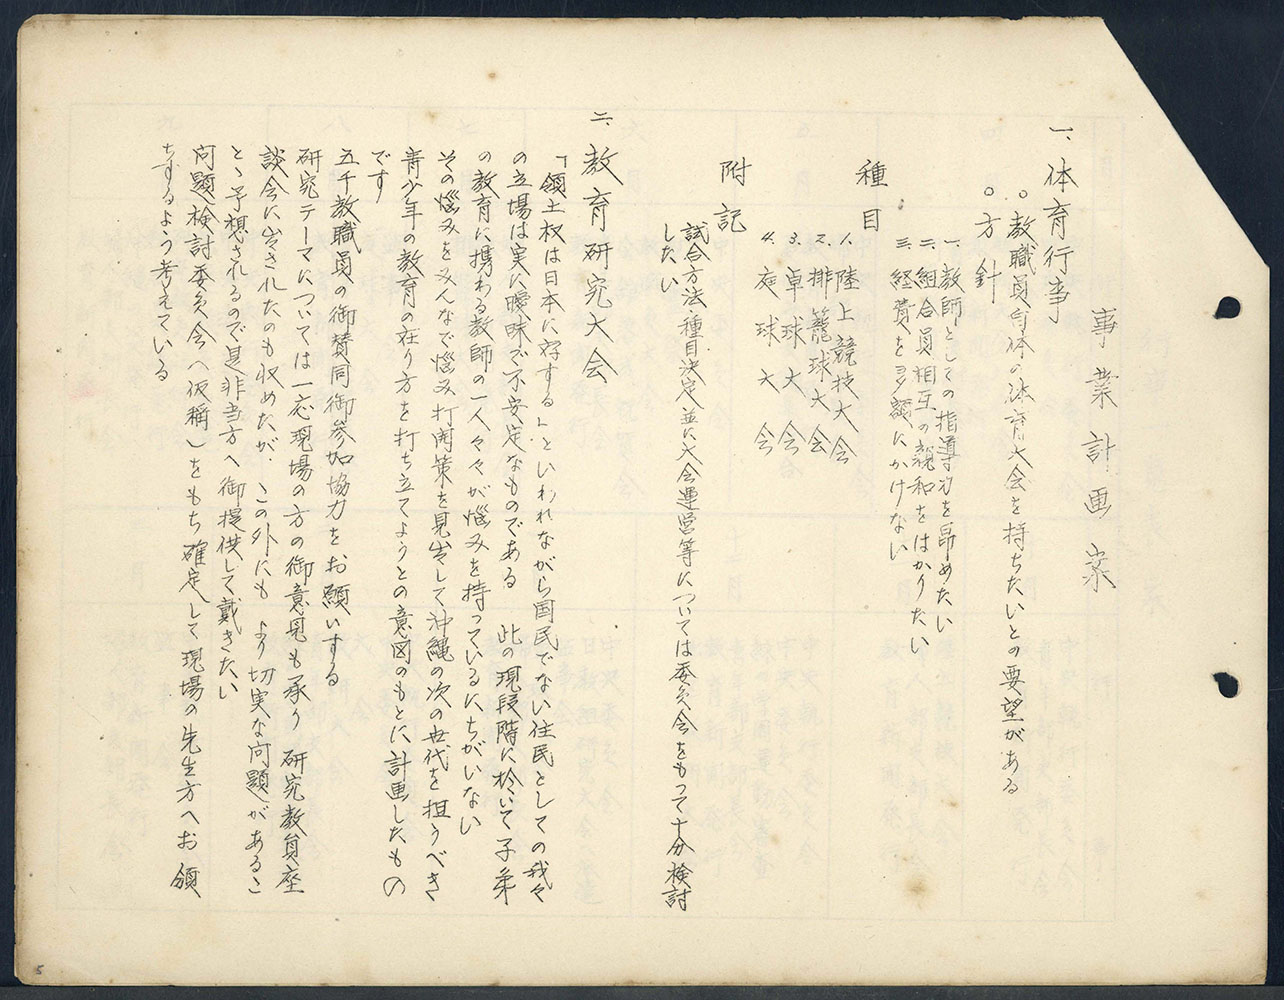 事業計画案
一、体育行事
○教職員自体の体育大会を持ちたいとの要望がある
○方針
一、教師としての指導力を昂めたい
二、組合員相互の親和をはかりたい
三、経費を多額にかけない
種目
1. 陸上競技大会
2. 排籠球大会
3. 卓球大会
4. 庭球大会
附記
試合方法、種目決定並に大会運営等については委員会をもって十分検討
したい
二、教育研究大会
「領土权は日本に存する」といわれながら国民でない住民としての我々
の立場は実に曖昧で不安定なものである 此の現段階に於いて子弟
の教育に携わる教師の一人々々が悩みを持っているにちがいない
その悩みをみんなで悩み打開策を見出して沖縄の次の世代を担うべき
青少年の教育の在り方を打ち立てようとの意図のもとに計画したもの
です
五千教職員の御賛同御参加協力をお願いする
研究テーマについては一応現場の方の御意見も承り研究教員座
談会に出されたのも収めたが、この外にもより切実な問題があるこ
とゝ予想されるので是非当方へ御提供して戴きたい
問題検討委員会(仮称)をもち確定して現場の先生方へお願
ちするよう考えている
5